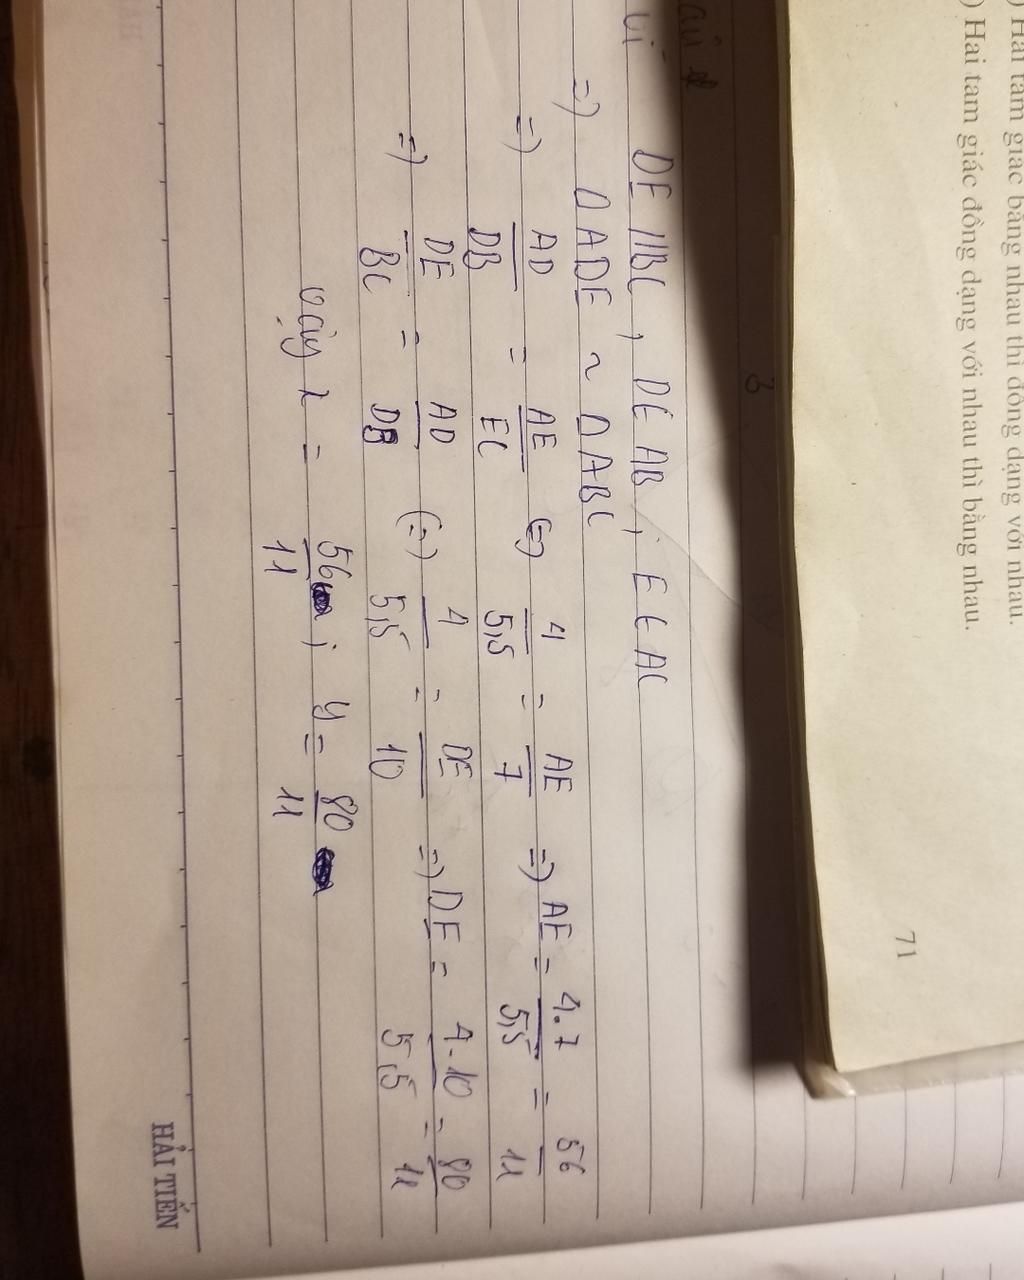 ) Hai tam giác bằng nhau thì đồng dạng với nhau.
) Hai tam giác đồng dạng với nhau thì bằng nhau.
71
Vì DE // BC, D ∈ AB, E ∈ AC
=) Δ ADE ~ Δ ABC
=) AD/DB = AE/EC (=) 4/5,5 = AE/7 =) AE = 4.7/5,5 = 56/11
=) DE/BC = AD/DB (=) 4/5,5 = DE/10 =) DE = 4.10/5,5 = 80/11
Vậy x = 56/11; y = 80/11
HẢI TIẾN